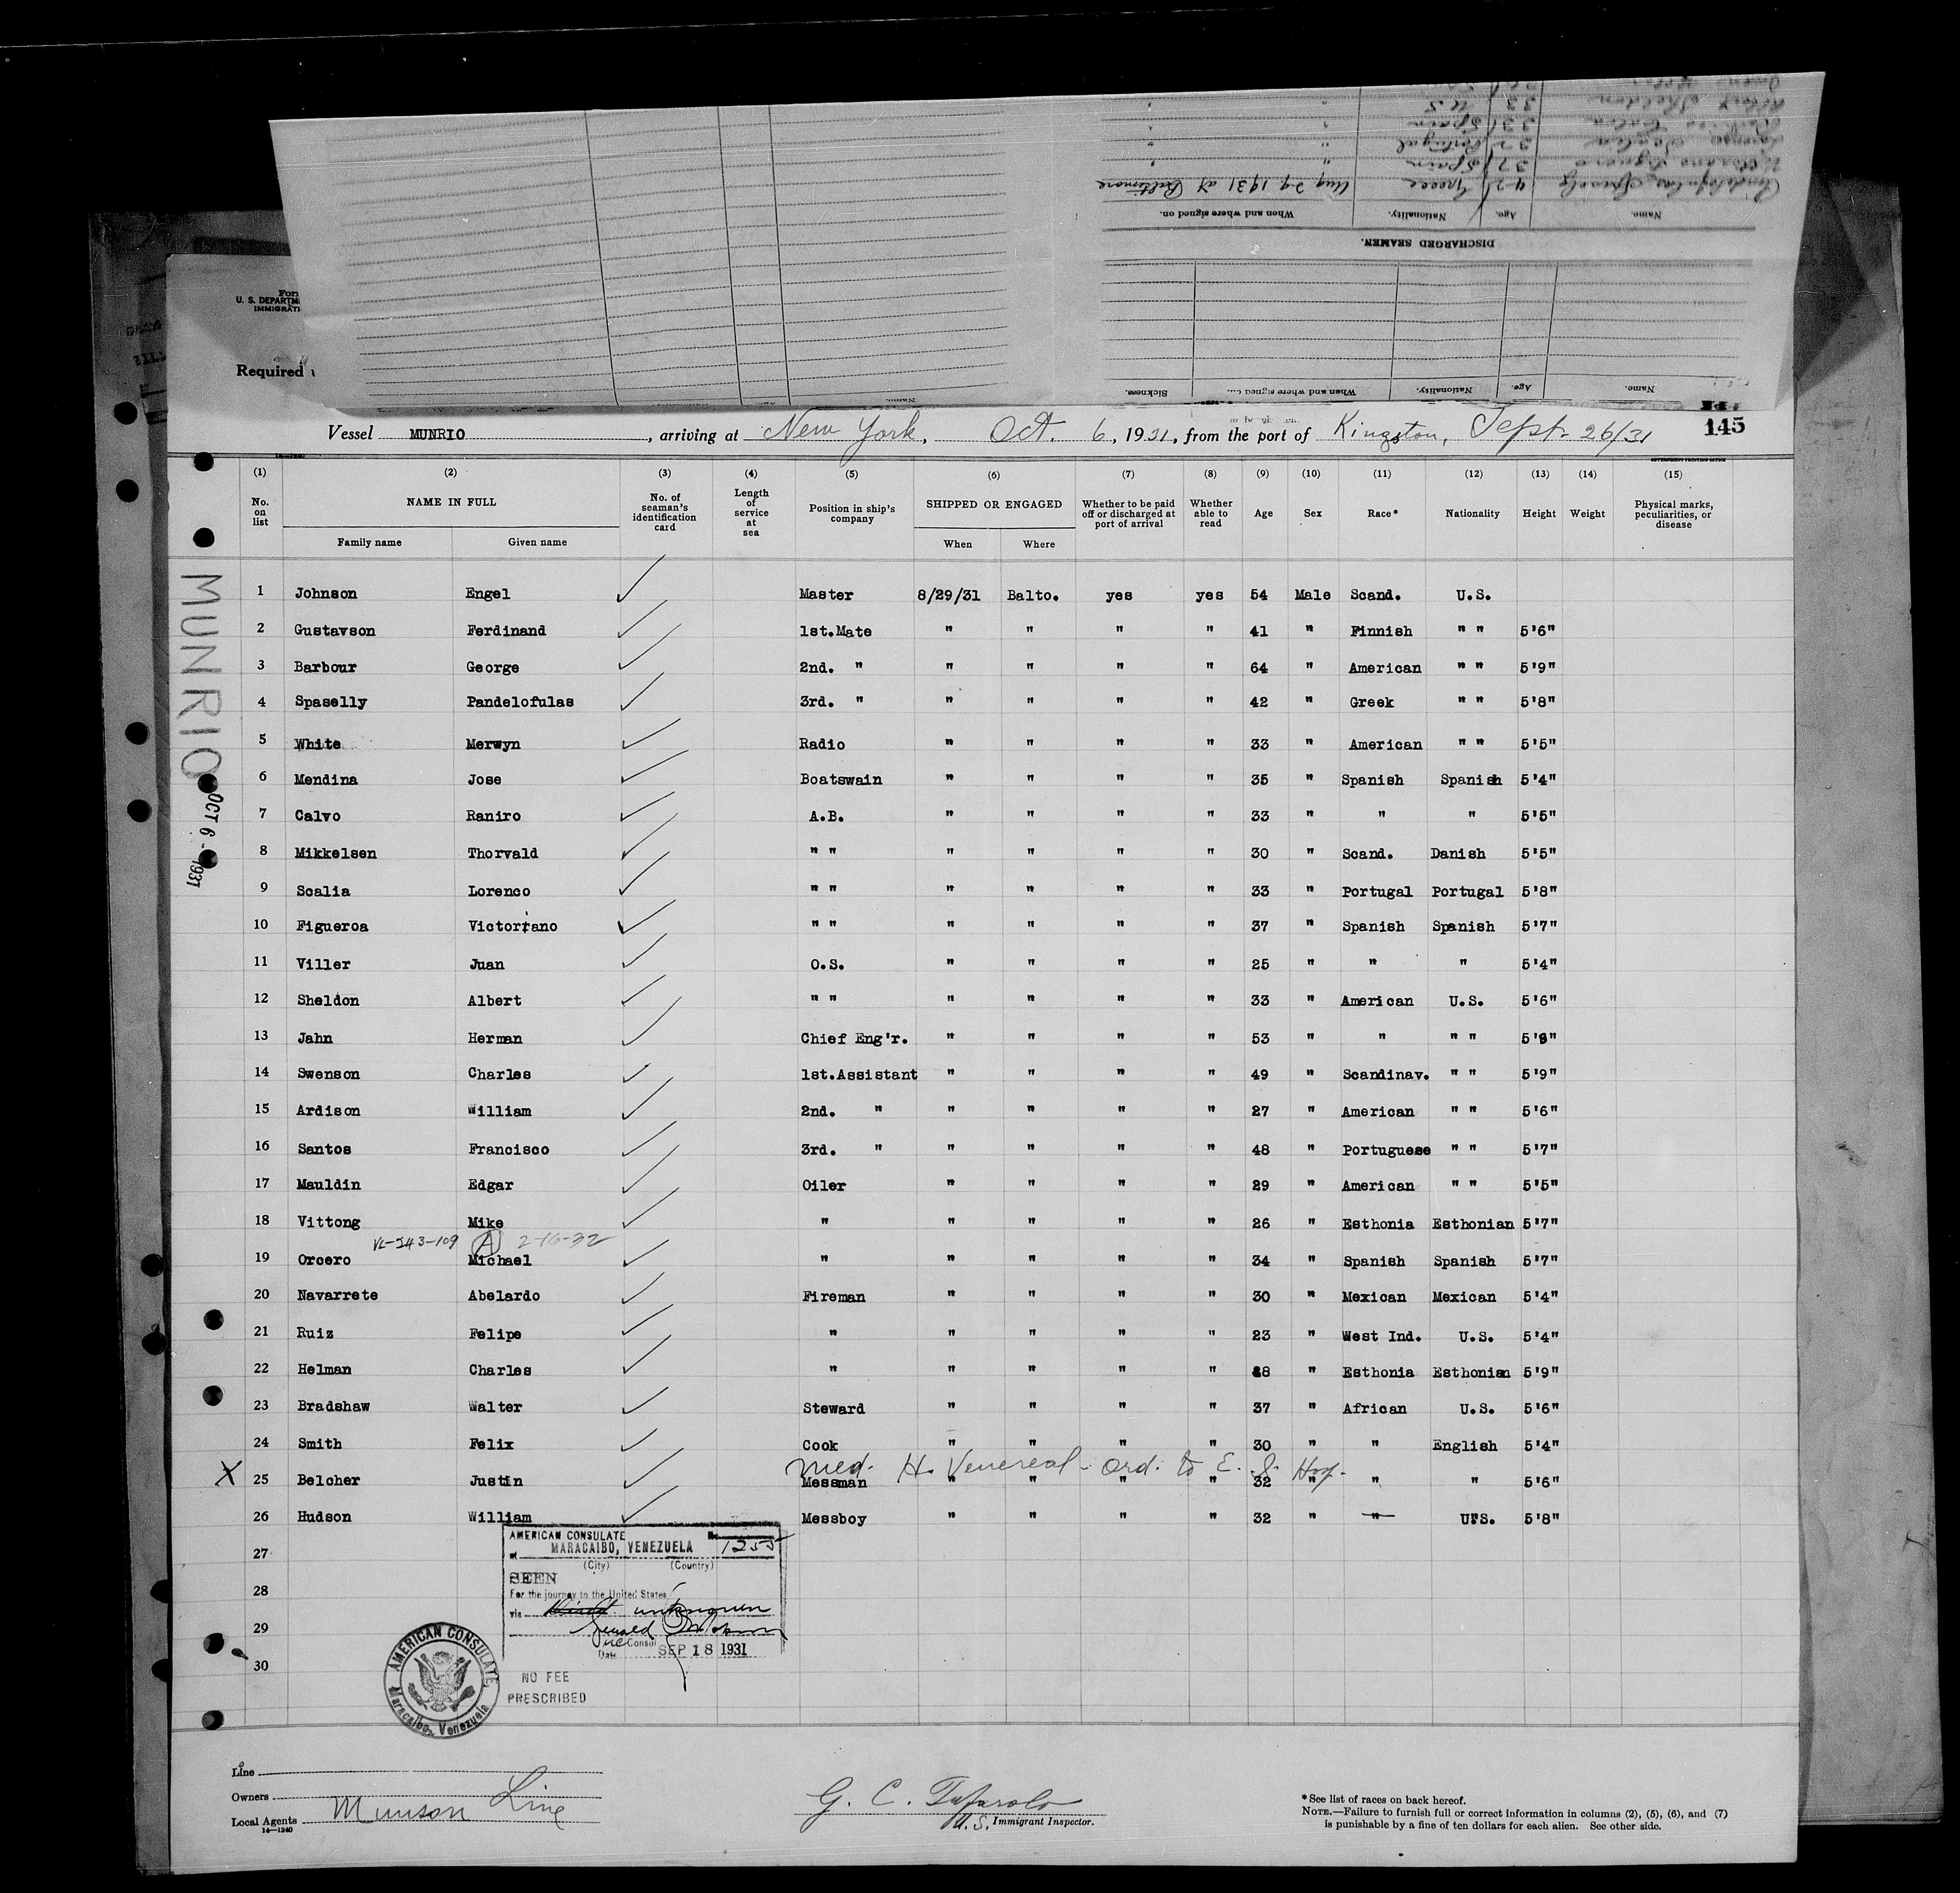 Aug 29 1931 at Baltimore
Name. Age. Nationality. When and where signed on.
DISCHARGED SEAMEN.
Name. Age. Nationality. When and where signed Sickness.
U. S. DEPARTM
IMMIGRATI
Required
Vessel MUNRIO, arriving at New York, Oct. 6, 1931, from the port of Kingston, Sept. 26/31 145
(1) (2) (3) (4) (5) (6) (7) (8) (9) (10) (11) (12) (13) (14) (15)
No. on list NAME IN FULL No. of seaman's identification card Length of service at sea Position in ship's company SHIPPED OR ENGAGED Whether to be paid off or discharged at port of arrival Whether able to read Age Sex Race* Nationality Height Weight Physical marks, peculiarities, or disease
Family name Given name When Where
MUNRIO
OCT 6 - 1931
1 Johnson Engel Master 8/29/31 Balto. yes yes 54 Male Scand. U.S.
2 Gustavson Ferdinand 1st.Mate " " " " 41 " Finnish " " 5'6"
3 Barbour George 2nd. " " " " " 64 " American " " 5'9"
4 Spaselly Pandelofulas 3rd. " " " " " 42 " Greek " " 5'8"
5 White Merwyn Radio " " " " 33 " American " " 5'5"
6 Mendina Jose Boatswain " " " " 35 " Spanish Spanish 5'4"
7 Calvo Raniro A.B. " " " " 33 " " " 5'5"
8 Mikkelsen Thorvald " " " " " " 30 " Scand. Danish 5'5"
9 Scalia Lorenco " " " " " " 33 " Portugal Portugal 5'8"
10 Figueroa Victoriano " " " " " " 37 " Spanish Spanish 5'7"
11 Viller Juan O.S. " " " " 25 " " " 5'4"
12 Sheldon Albert " " " " " " 33 " American U.S. 5'6"
13 Jahn Herman Chief Eng'r. " " " " 53 " " " " 5'8"
14 Swenson Charles 1st.Assistant " " " " 49 " Scandinav. " " 5'9"
15 Ardison William 2nd. " " " " " 27 " American " " 5'6"
16 Santos Francisco 3rd. " " " " " 48 " Portuguese " " 5'7"
17 Mauldin Edgar Oiler " " " " 29 " American " " 5'5"
18 Vittong Mike " " " " " 26 " Esthonia Esthonian 5'7"
VL-343-109 A 2-16-32
19 Orcero Michael " " " " " 34 " Spanish Spanish 5'7"
20 Navarrete Abelardo Fireman " " " " 30 " Mexican Mexican 5'4"
21 Ruiz Felipe " " " " " 23 " West Ind. U.S. 5'4"
22 Helman Charles " " " " " 28 " Esthonia Esthonian 5'9"
23 Bradshaw Walter Steward " " " " 37 " African U.S. 5'6"
24 Smith Felix Cook " " " " 30 " " English 5'4"
Med. H. Venereal - Ord. to E. I. Hosp.
X 25 Belcher Justin Messman " " " " 32 " " " 5'6"
26 Hudson William Messboy " " " " 32 " " U.S. 5'8"
27
28
29
30
AMERICAN CONSULATE No. 1255
at MARACAIBO, VENEZUELA
(City) (Country)
SEEN
For the journey to the United States
via unknown
Vice Consul
Date SEP 18 1931
NO FEE
PRESCRIBED
AMERICAN CONSULATE
Maracaibo, Venezuela
Line
Owners
Local Agents Munson Line
14—1240
G. C.
U.S. Immigrant Inspector.
* See list of races on back hereof.
NOTE.—Failure to furnish full or correct information in columns (2), (5), (6), and (7)
is punishable by a fine of ten dollars for each alien. See other side.